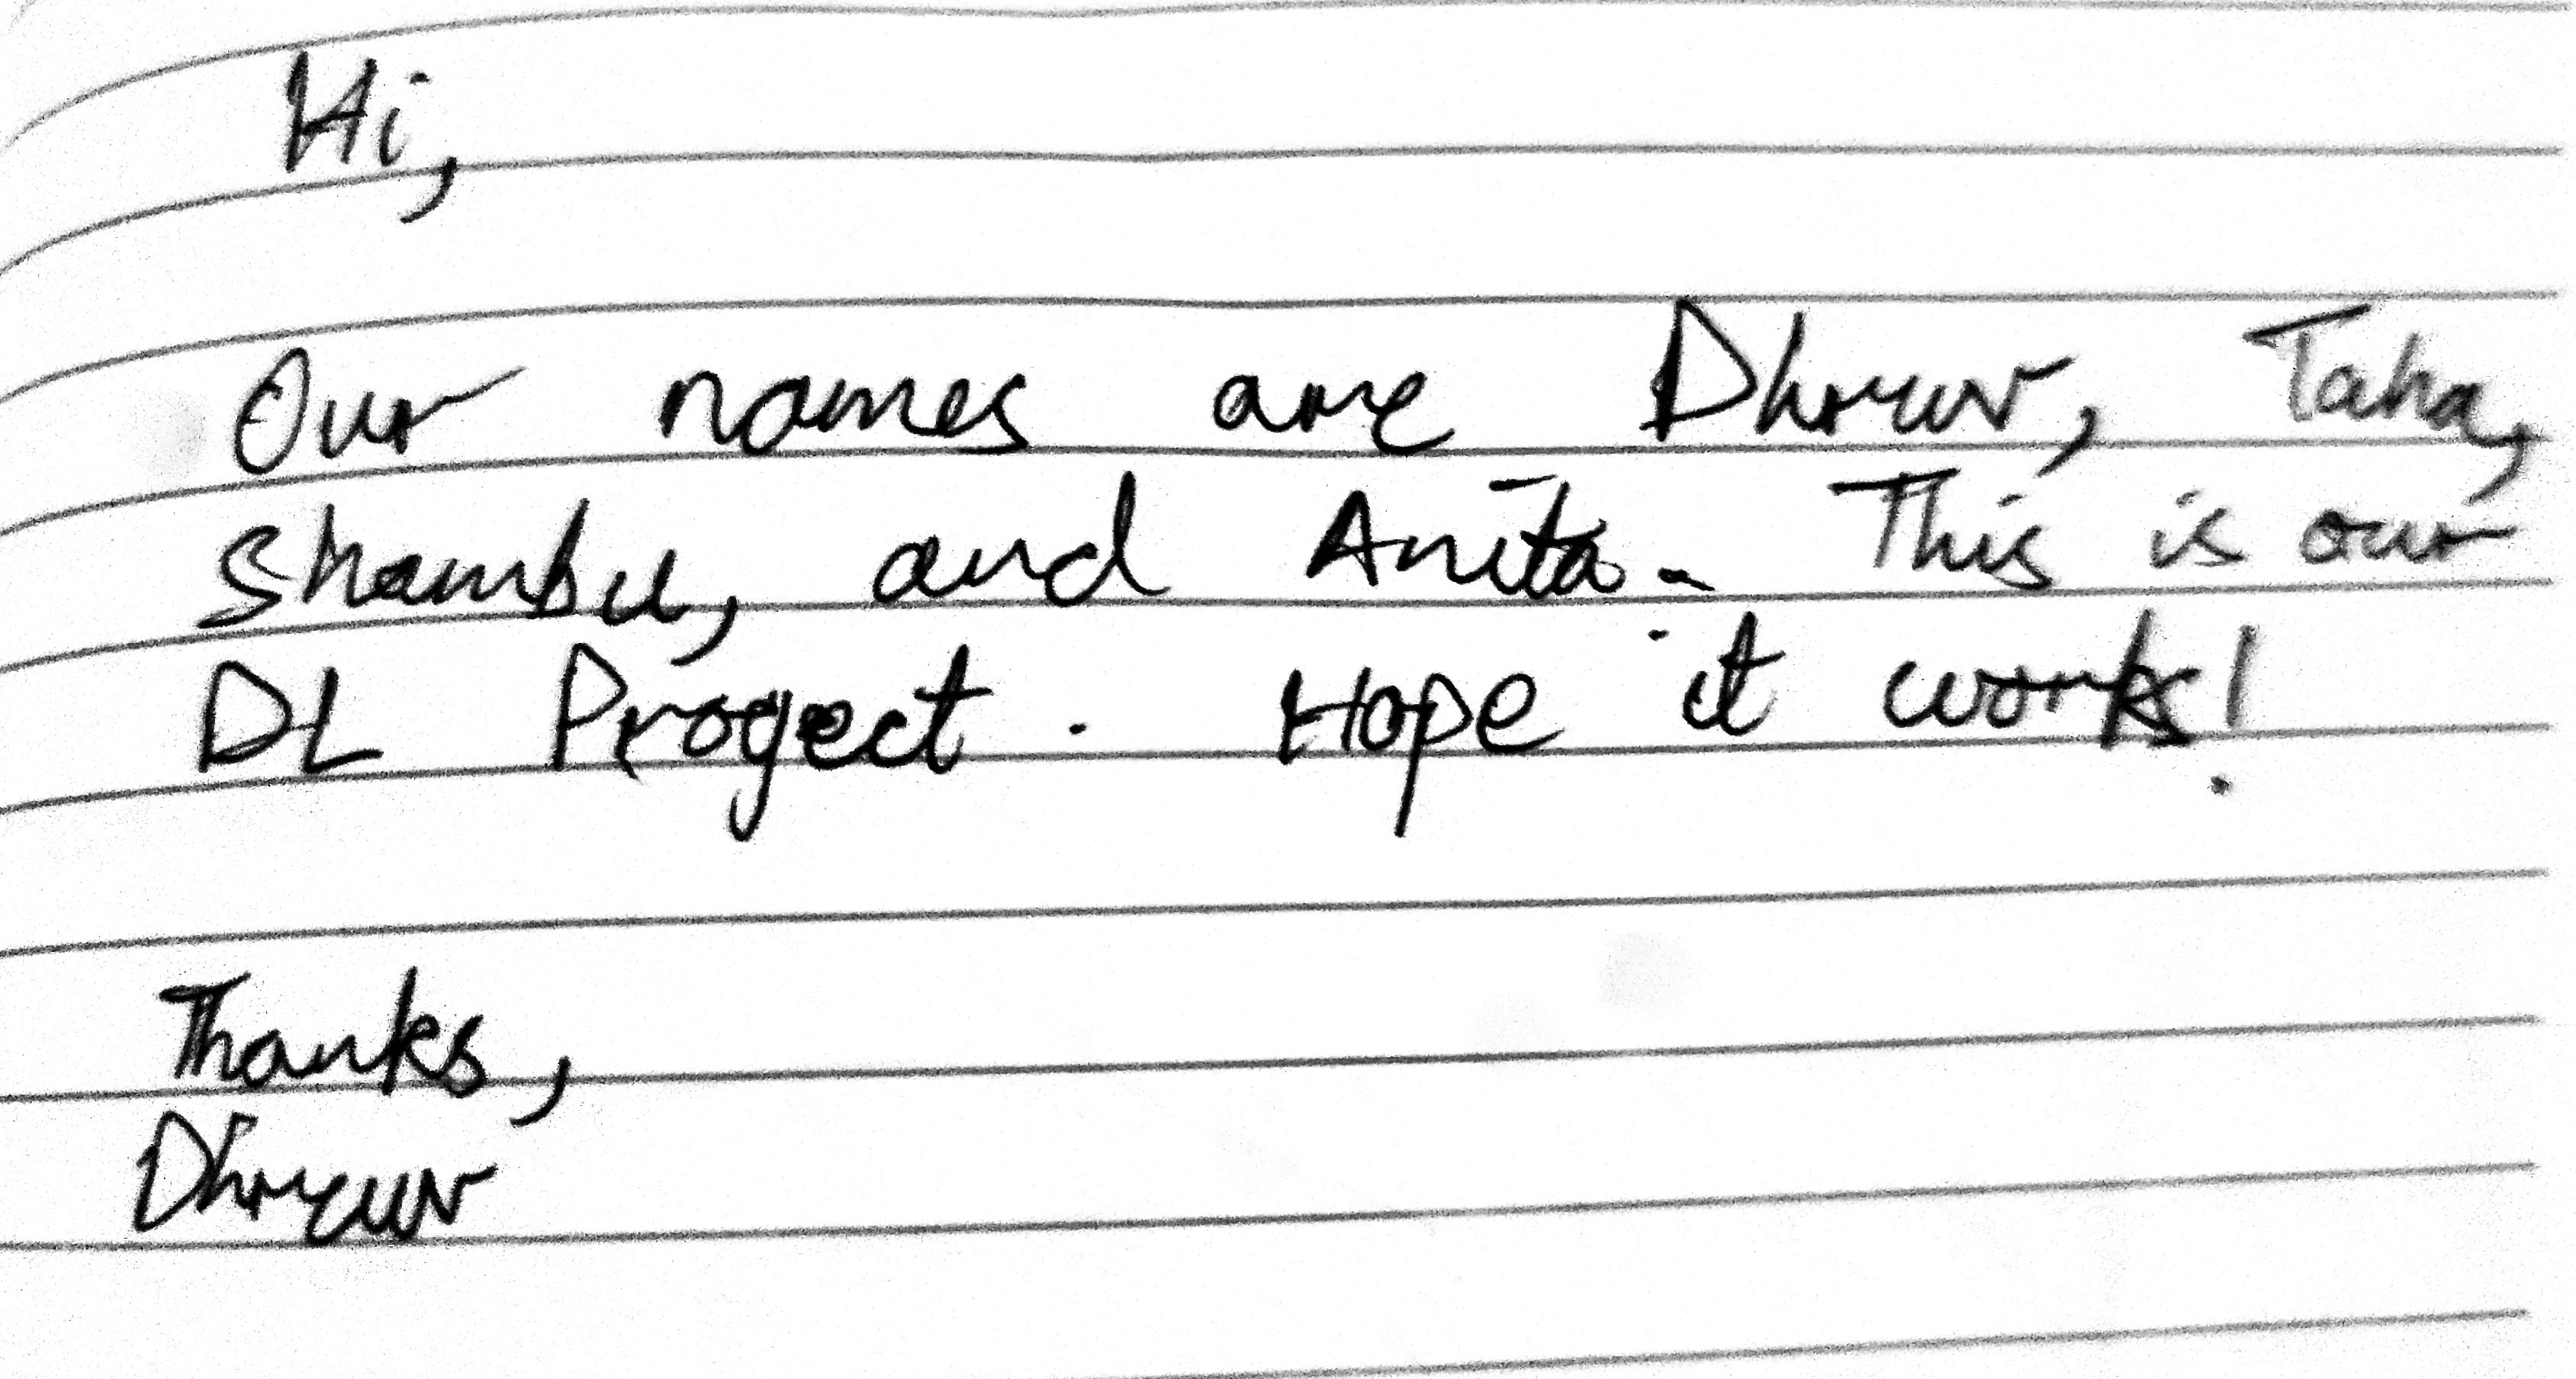 Hi,
Our names are Dhruv, Taha,
Shambu, and Anita. This is our
DL Project. Hope it works!
Thanks,
Dhruv